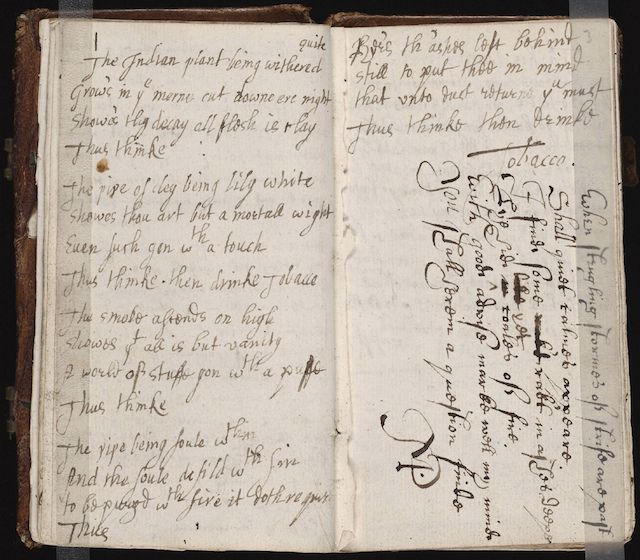 quite
The Indian plant being withered
Grow's in yᵉ morne cut downe ere night
Showes thy decay all flesh is clay
Thus thinke
The pipe of cley being lily white
Showes thou art but a mortall wight
Even such gon wᵗʰ a touch
Thus thinke then drinke Tobacco
The smoke ascends on high
Showes yᵗ all is but vanity
A world of stuffe gon wᵗʰ a puffe
Thus thinke
The pipe being foule wᵗʰin
And the soule defild wᵗʰ sin
to be purgd wᵗʰ fire it doth requir
Thus
th' ashes left behind
still to put thee in mind
that unto dust returne yᵘ must
Thus thinke then drinke
Tobacco.
When stinging stormes of are past
Shall quiet calmes appeare.
I find some in
of fire.
With good advise marke well my minde
You shall a question finde